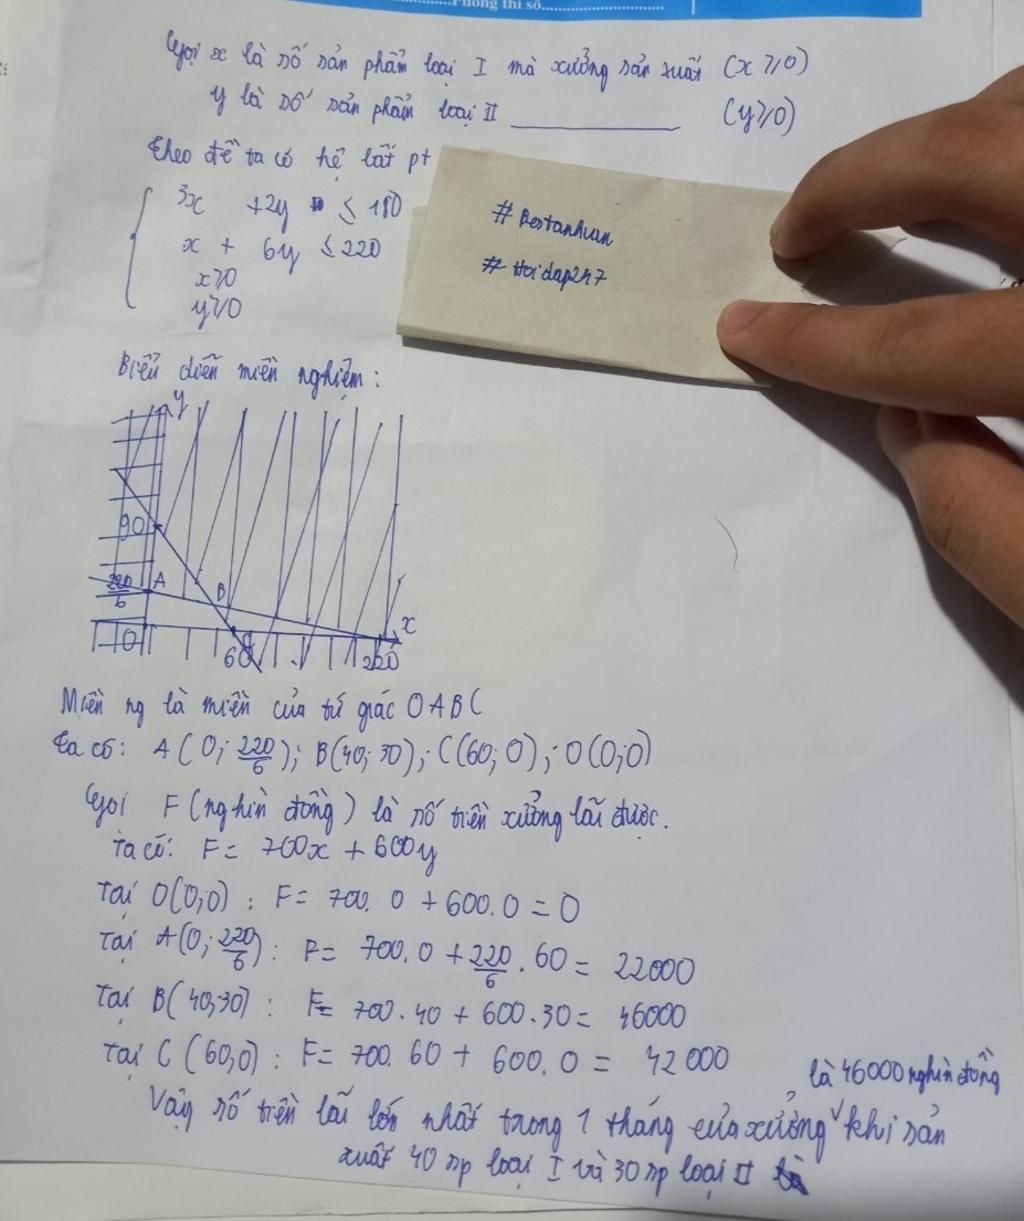 Phòng thi số
Gọi x là số sản phẩm loại I mà xưởng sản xuất (x ≥ 0)
y là số sản phẩm loại II ________ (y ≥ 0)
Theo đề ta có hệ bất pt
3x + 2y ≤ 180
x + 6y ≤ 220
x ≥ 0
y ≥ 0
# Bestanhuan
# Hoidap247
Biểu diễn miền nghiệm:
y
90
220/6 A B
O 60 C 220 x
Miền ng là miền của tứ giác OABC
Ta có: A(0; 220/6); B(40; 30); C(60; 0); O(0;0)
Gọi F (nghìn đồng) là số tiền xưởng lãi được.
Ta có: F = 700x + 600y
Tại O(0;0) : F = 700. 0 + 600. 0 = 0
Tại A(0; 220/6) : F = 700. 0 + 220/6 . 60 = 22000
Tại B(40;30) : F = 700. 40 + 600. 30 = 46000
Tại C (60;0) : F = 700. 60 + 600. 0 = 42000
, là 46000 nghìn đồng
Vậy số tiền lãi lớn nhất trong 1 tháng của xưởng khi sản
xuất 40 sp loại I và 30 sp loại II